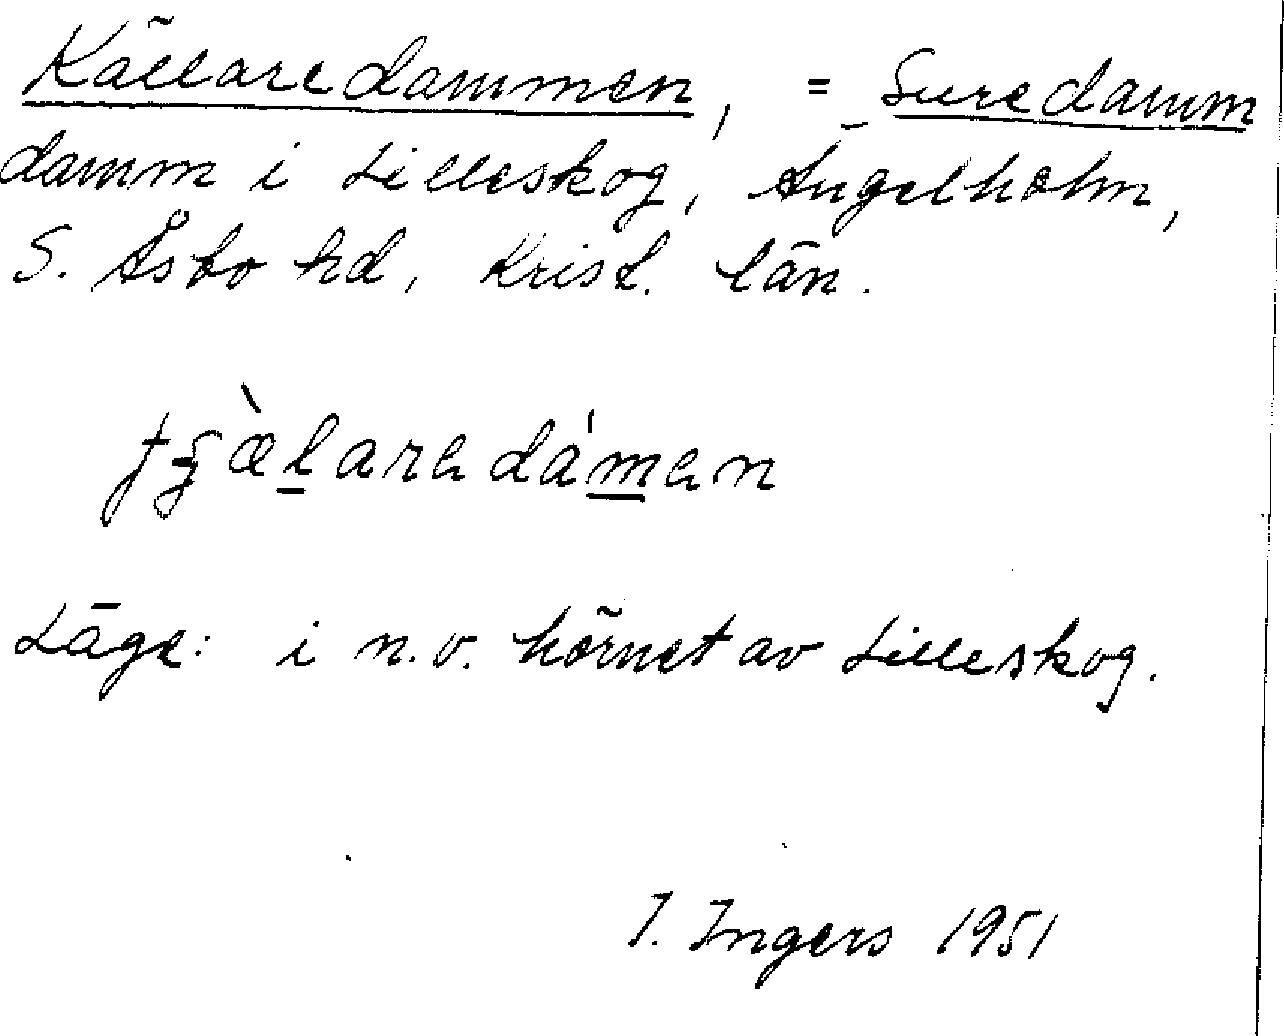 Källaredammen, = Suredamm
damm i Lilleskog, Ängelholm,
S. Åsbo hd, Krist. län.
tʂæ̀laredámen
Läge: i n.v. hörnet av Lilleskog.
I. Ingers 1951